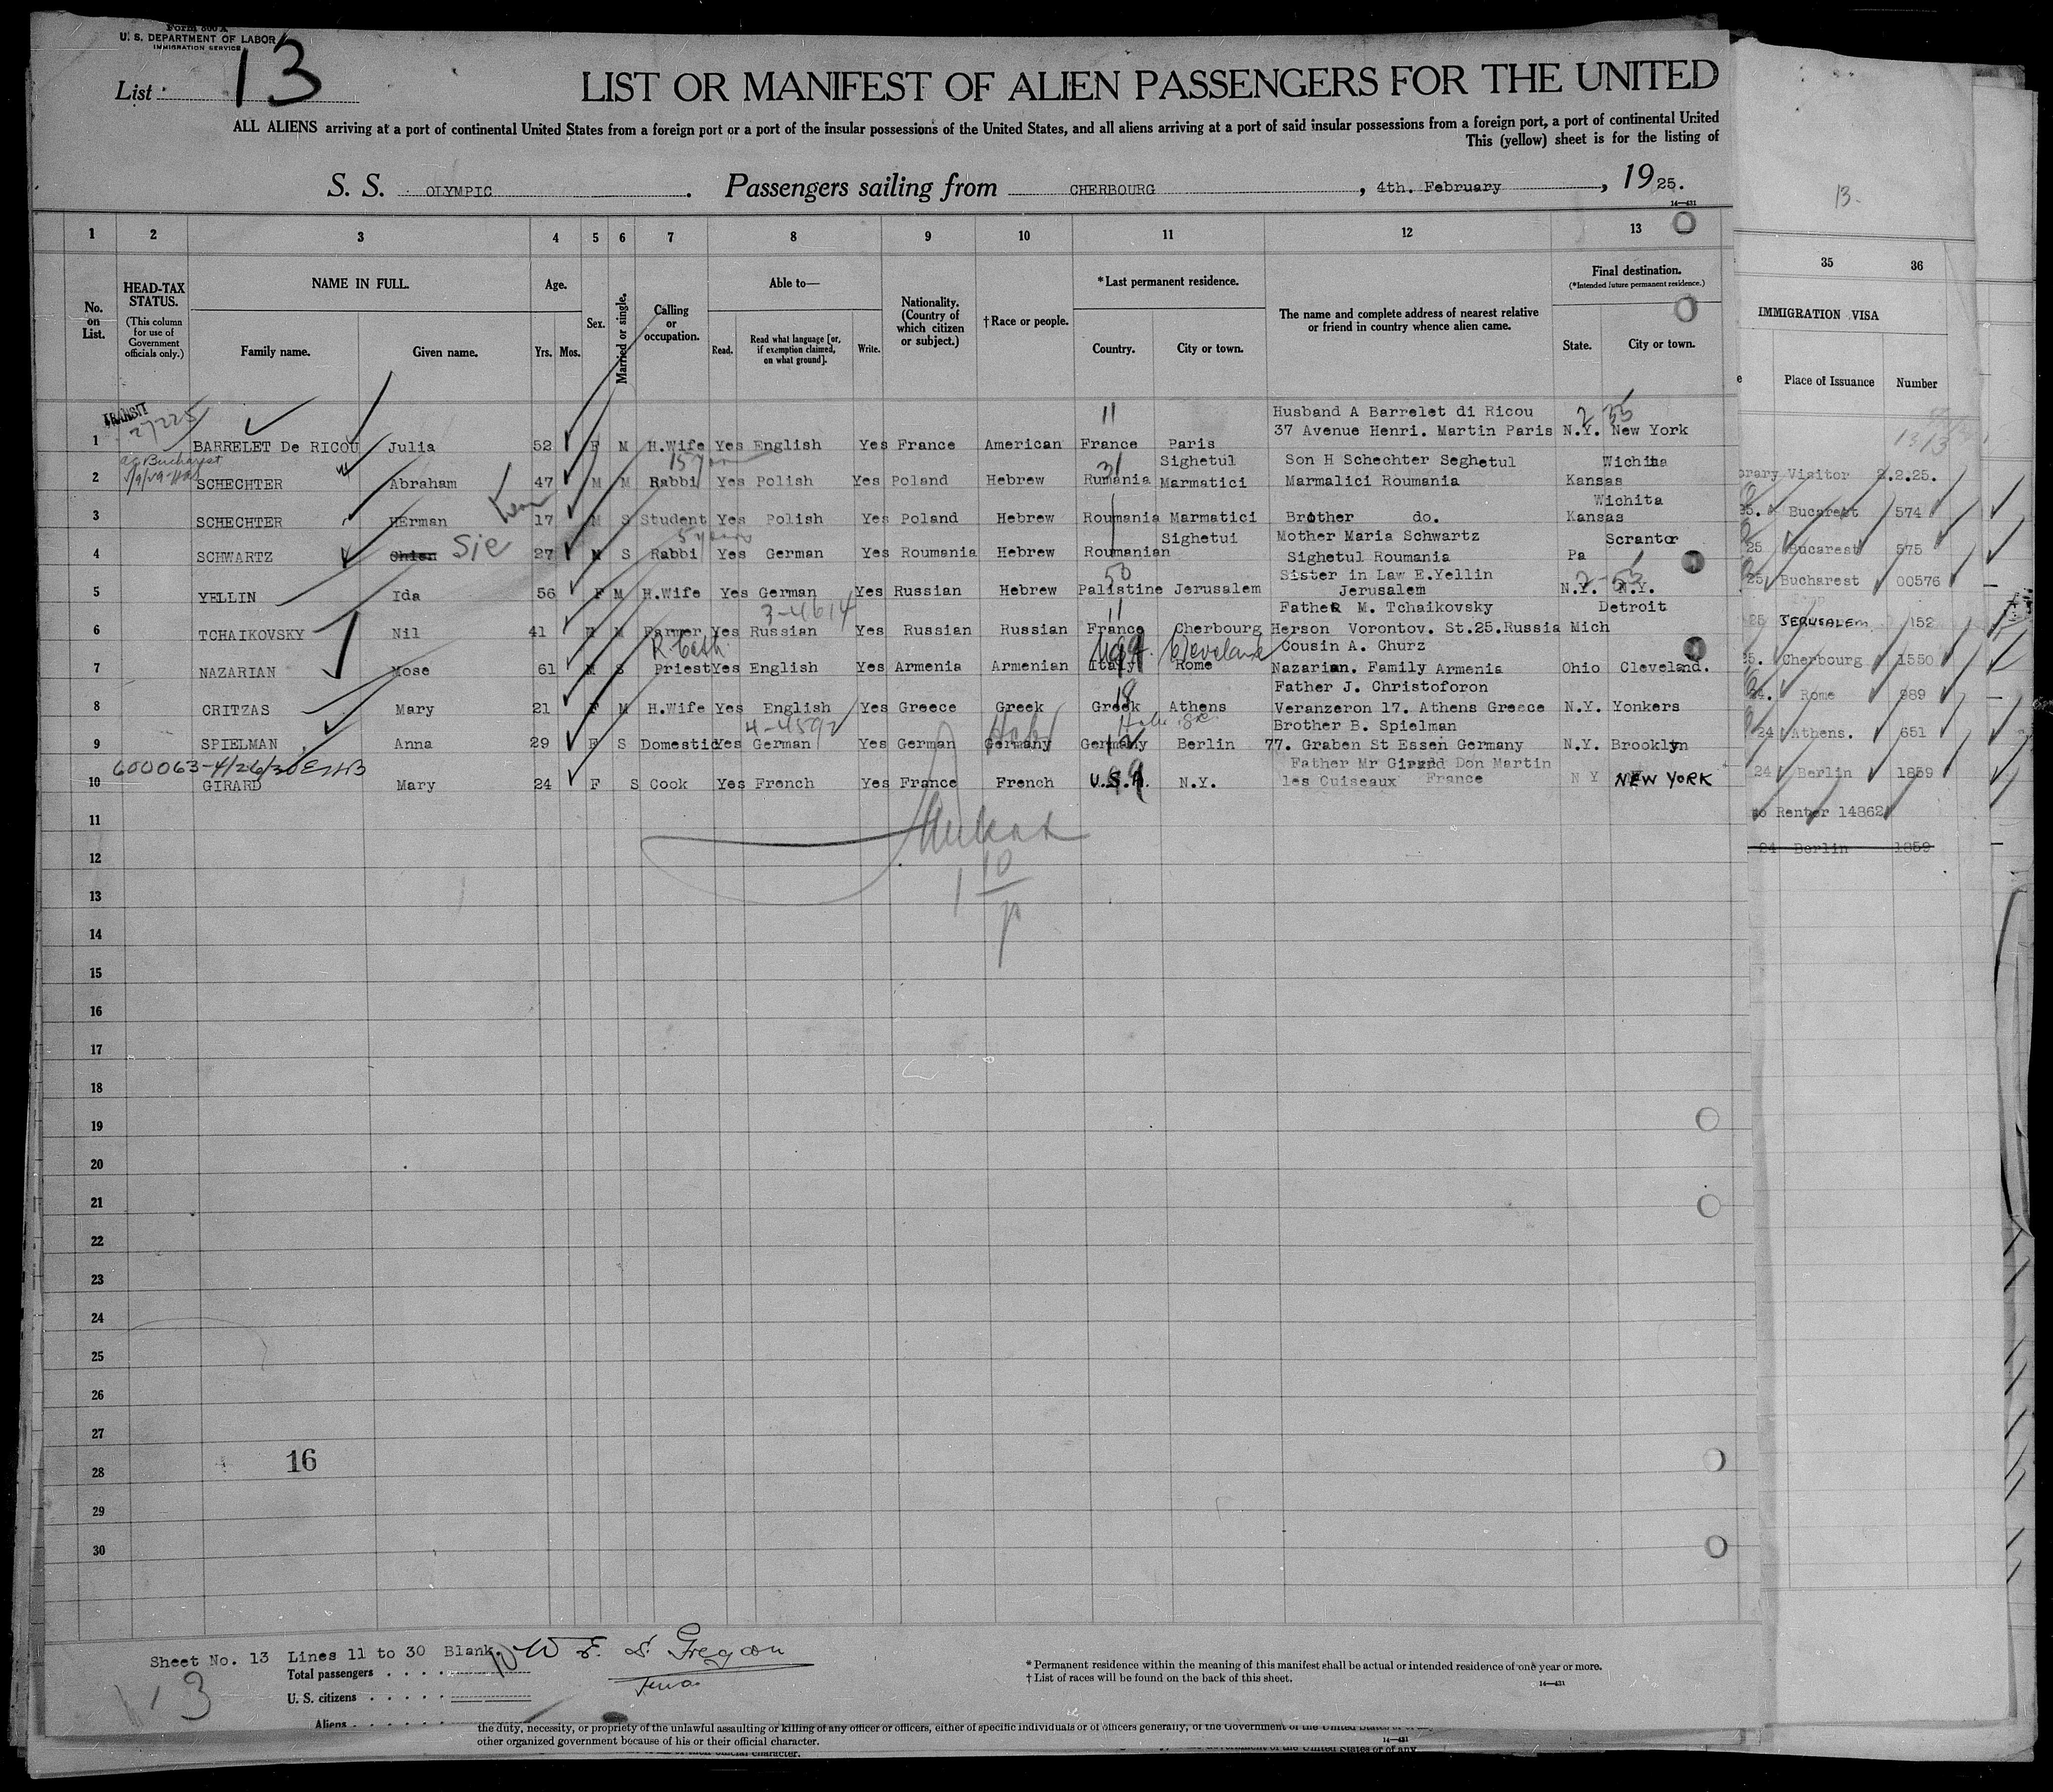 Form 500 A
U. S. DEPARTMENT OF LABOR
IMMIGRATION SERVICE
List 13
LIST OR MANIFEST OF ALIEN PASSENGERS FOR THE UNITED
ALL ALIENS arriving at a port of continental United States from a foreign port or a port of the insular possessions of the United States, and all aliens arriving at a port of said insular possessions from a foreign port, a port of continental United
This (yellow) sheet is for the listing of
S. S. OLYMPIC. Passengers sailing from CHERBOURG, 4th. February, 1925.
14—431
13.
1 2 3 4 5 6 7 8 9 10 11 12 13 35 36
No. on List.
HEAD-TAX STATUS.
(This column for use of Government officials only.)
NAME IN FULL.
Family name. Given name.
Age.
Yrs. Mos.
Sex.
Married or single.
Calling or occupation.
Able to—
Read. Read what language [or, if exemption claimed, on what ground]. Write.
Nationality. (Country of which citizen or subject.)
†Race or people.
*Last permanent residence.
Country. City or town.
The name and complete address of nearest relative or friend in country whence alien came.
Final destination.
(*Intended future permanent residence.)
State. City or town.
IMMIGRATION VISA
Place of Issuance Number
TRANSIT
27225 11 Husband A Barrelet di Ricou 2 33
1 BARRELET De RICOU Julia 52 F M H.Wife Yes English Yes France American France Paris 37 Avenue Henri. Martin Paris N.Y. New York
15 31 Sighetul Son H Schechter Seghetul Wichita
2 SCHECHTER Abraham 47 M M Rabbi Yes Polish Yes Poland Hebrew Rumania Marmatici Marmalici Roumania Kansas
orary Visitor 2.2.25.
Wichita
3 SCHECHTER HErman 17 M S Student Yes Polish Yes Poland Hebrew Roumania Marmatici Brother do. Kansas
25. Bucarest 574
5 years Sighetui Mother Maria Schwartz Scranton
4 SCHWARTZ Chien Sie 27 M S Rabbi Yes German Yes Roumania Hebrew Roumanian Sighetul Roumania Pa
25 Bucarest 575
50 Sister in Law E.Yellin 2-33
5 YELLIN Ida 56 F M H.Wife Yes German Yes Russian Hebrew Palistine Jerusalem Jerusalem N.Y. N.Y.
25 Bucharest 00576
3-4614 11 FatheR M. Tchaikovsky Detroit
6 TCHAIKOVSKY Nil 41 M M Farmer Yes Russian Yes Russian Russian France Cherbourg Herson Vorontov. St.25.Russia Mich
25 JERUSALEM 152
R. Cath. Cleveland Cousin A. Churz
7 NAZARIAN Mose 61 M S Priest Yes English Yes Armenia Armenian Italy Rome Nazarian. Family Armenia Ohio Cleveland.
25. Cherbourg 1550
18 Father J. Christoforon
8 CRITZAS Mary 21 F M H.Wife Yes English Yes Greece Greek Greek Athens Veranzeron 17. Athens Greece N.Y. Yonkers
24. Rome 989
4-4592 Brother B. Spielman
9 SPIELMAN Anna 29 F S Domestic Yes German Yes German Germany Germany Berlin 77. Graben St Essen Germany N.Y. Brooklyn
24 Athens. 651
600063-4/26/30 Father Mr Girard Don Martin
10 GIRARD Mary 24 F S Cook Yes French Yes France French U.S.A. N.Y. les Cuiseaux France N Y NEW YORK
24 Berlin 1859
11
to Renter 14862
12
24 Berlin 1859
13
14
15
16
17
18
19
20
21
22
23
24
25
26
27
28 16
29
30
Sheet No. 13 Lines 11 to 30 Blank.
Total passengers 10
U. S. citizens
Aliens
13
* Permanent residence within the meaning of this manifest shall be actual or intended residence of one year or more.
† List of races will be found on the back of this sheet.
14—431
the duty, necessity, or propriety of the unlawful assaulting or killing of any officer or officers, either of specific individuals or of officers generally, of the Government of the United States or of any
other organized government because of his or their official character.
14—431